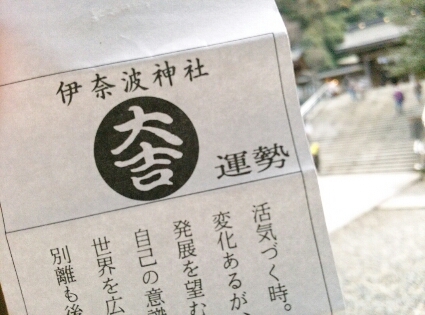 伊奈波神社
大吉
運勢
活気づく時。
変化あるが、
発展を望む
自己の意識
世界を広
別離も後